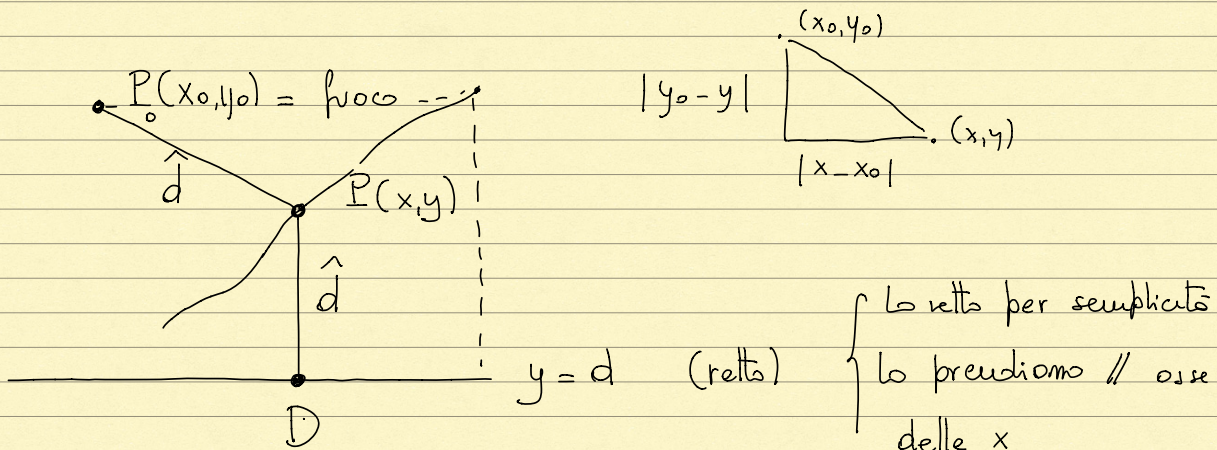 P₀(x₀,y₀) = fuoco
d̂
P(x,y)
d̂
D
y = d (retta)
(x₀,y₀)
|y₀-y|
(x,y)
|x-x₀|
La retta per semplicità
la prendiamo // asse
delle x